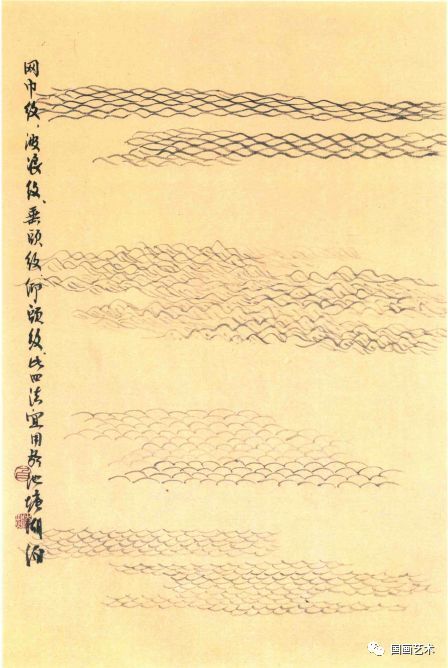 网巾纹、波浪纹、垂頭纹、仰頭纹、此四法宜用於池塘湖泊
国画艺术